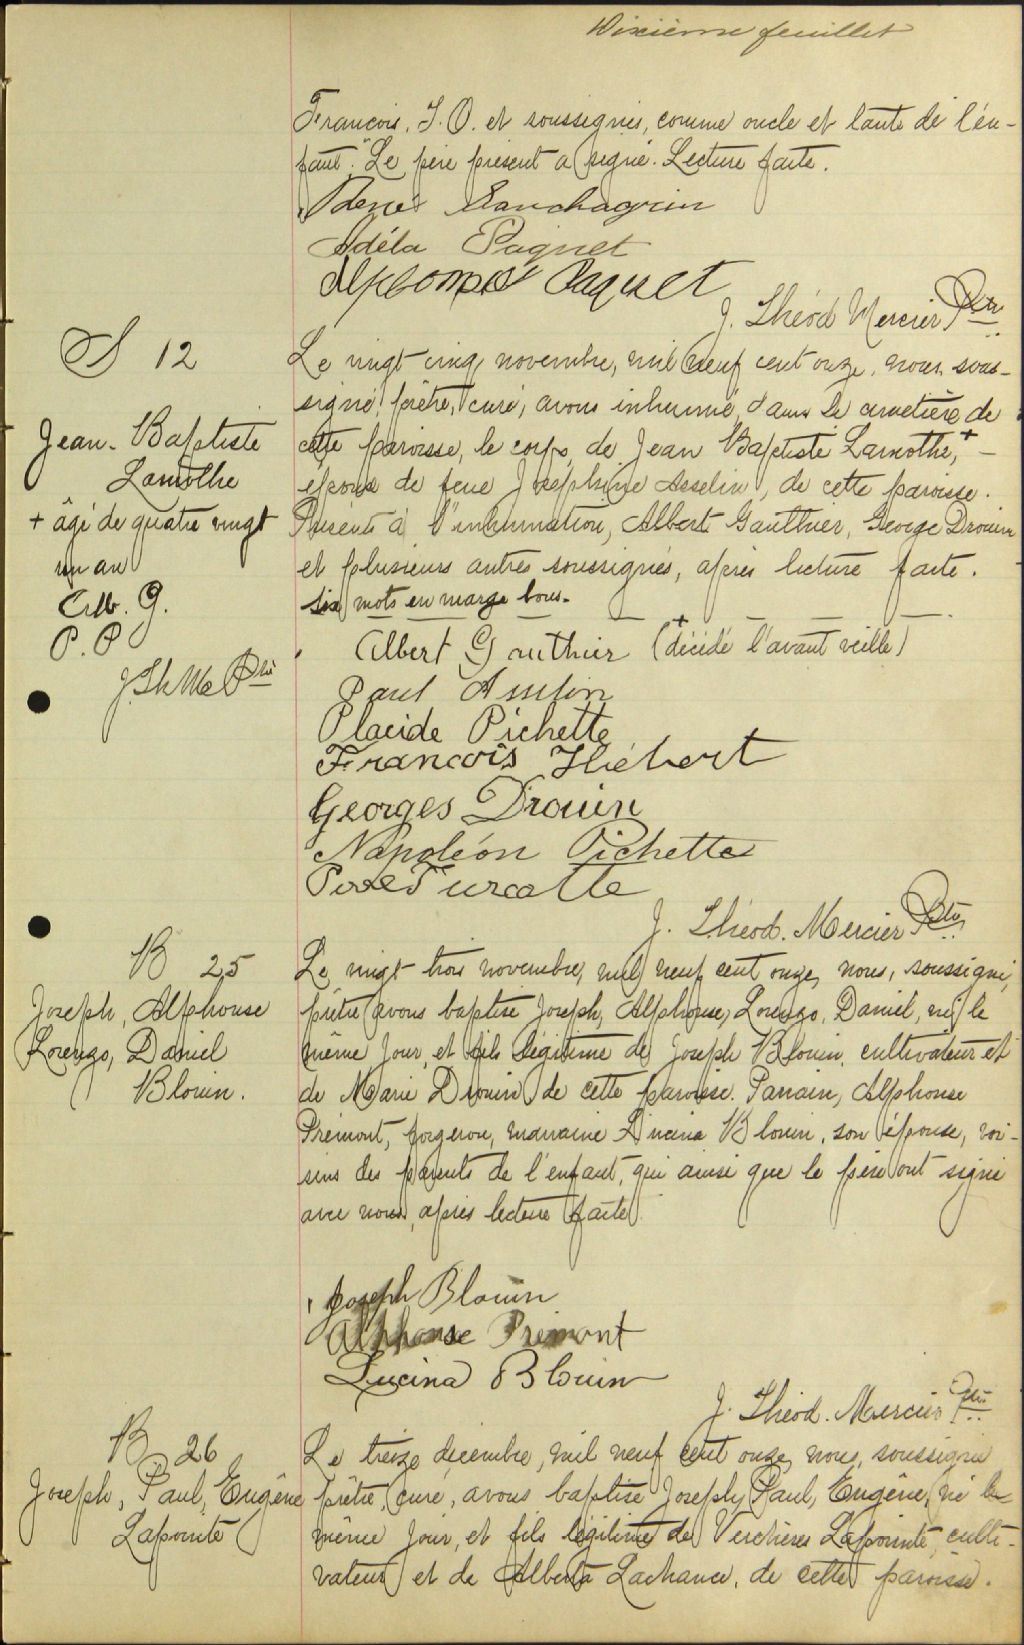 Dixième feuillet
François, I. O. et soussignés, comme oncle et tante de l'en-
fant. Le père présent a signé. Lecture faite.
Sanschagrin
Adéla Paquet
Alphonse Paquet
J. Théod Mercier Ptre
S 12
Jean-Baptiste
Lamothe
+ âgé de quatre vingt
un an
Alb. G.
P. P
J. Th. Me Ptre
Le vingt cinq novembre, mil neuf cent onze, nous sous-
signé, prêtre, curé, avons inhumé, dans le cimetière de
cette paroisse, le corps, de Jean Baptiste Lamothe, + –
époux de feue Joséphine Asselin, de cette paroisse.
Présents à l'inhumation, Albert Gauthier, George Drouin
et plusieurs autres soussignés, après lecture faite.
six mots en marge bons.
Albert Gauthier (+ décédé l'avant veille)
Paul Asselin
Placide Pichette
François Hébert
Georges Drouin
Napoléon Pichette
Turcotte
J. Théod. Mercier Ptre
B 25
Joseph, Alphonse
Lorenzo, Daniel
Blouin.
Le vingt trois novembre, mil neuf cent onze, nous, soussigné,
prêtre avons baptisé Joseph, Alphonse, Lorenzo, Daniel, né le
même jour, et fils légitime de Joseph Blouin, cultivateur et
de Marie Drouin de cette paroisse. Parrain, Alphonse
Prémont, forgeron, marraine Lucina Blouin, son épouse, voi-
sins des parents de l'enfant, qui ainsi que le père ont signé
avec nous, après lecture faite
Joseph Blouin
Alphonse Premont
Lucina Blouin
J. Théod. Mercier Ptre
B 26
Joseph, Paul, Eugène
Lapointe
Le treize décembre, mil neuf cent onze, nous, soussigné
prêtre, curé, avons baptisé Joseph, Paul, Eugène, né le
même jour, et fils légitime de Verchères Lapointe, culti-
vateur et de Alberta Lachance, de cette paroisse.